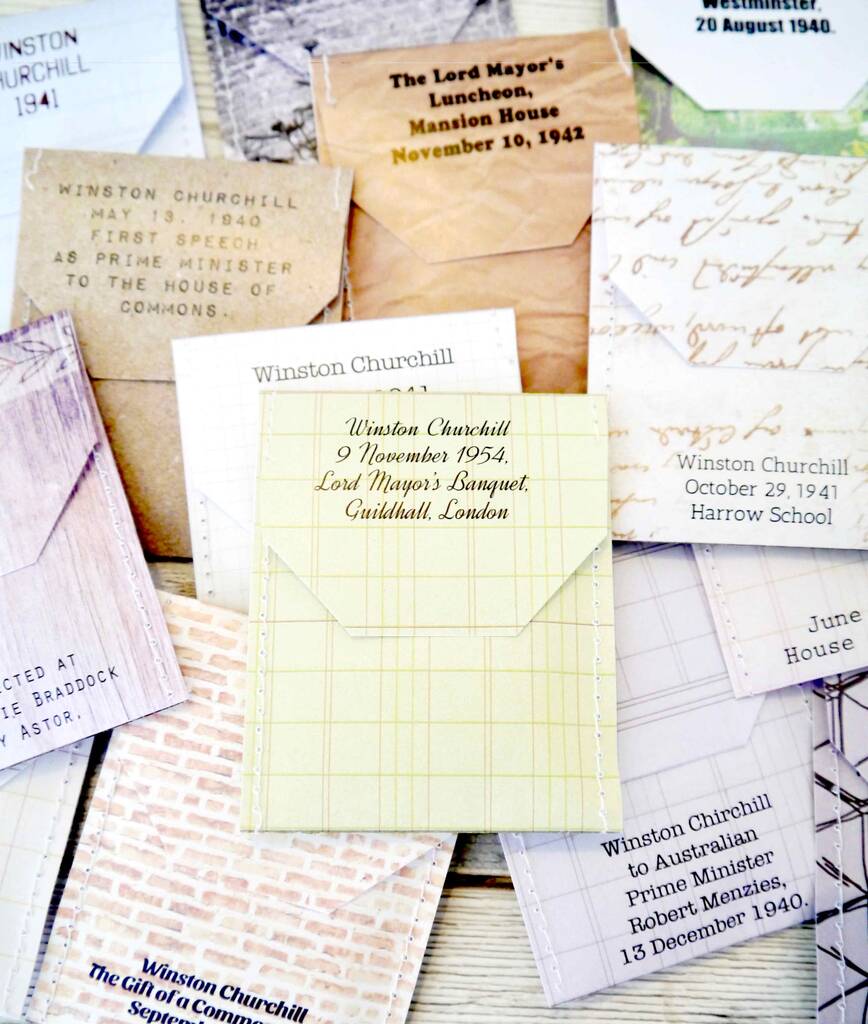 WINSTON
CHURCHILL
1941
The Lord Mayor's
Luncheon,
Mansion House
November 10, 1942
Westminster,
20 August 1940.
WINSTON CHURCHILL
MAY 13, 1940
FIRST SPEECH
AS PRIME MINISTER
TO THE HOUSE OF
COMMONS.
Winston Churchill
1941
Winston Churchill
9 November 1954,
Lord Mayor's Banquet,
Guildhall, London
Winston Churchill
October 29, 1941
Harrow School
June
House
BRADDOCK
ASTOR.
Winston Chirchill
to Australian
Prime Minister
Robert Menzies,
13 December 1940.
Winston Churchill
The Gift of a Comm
Septem